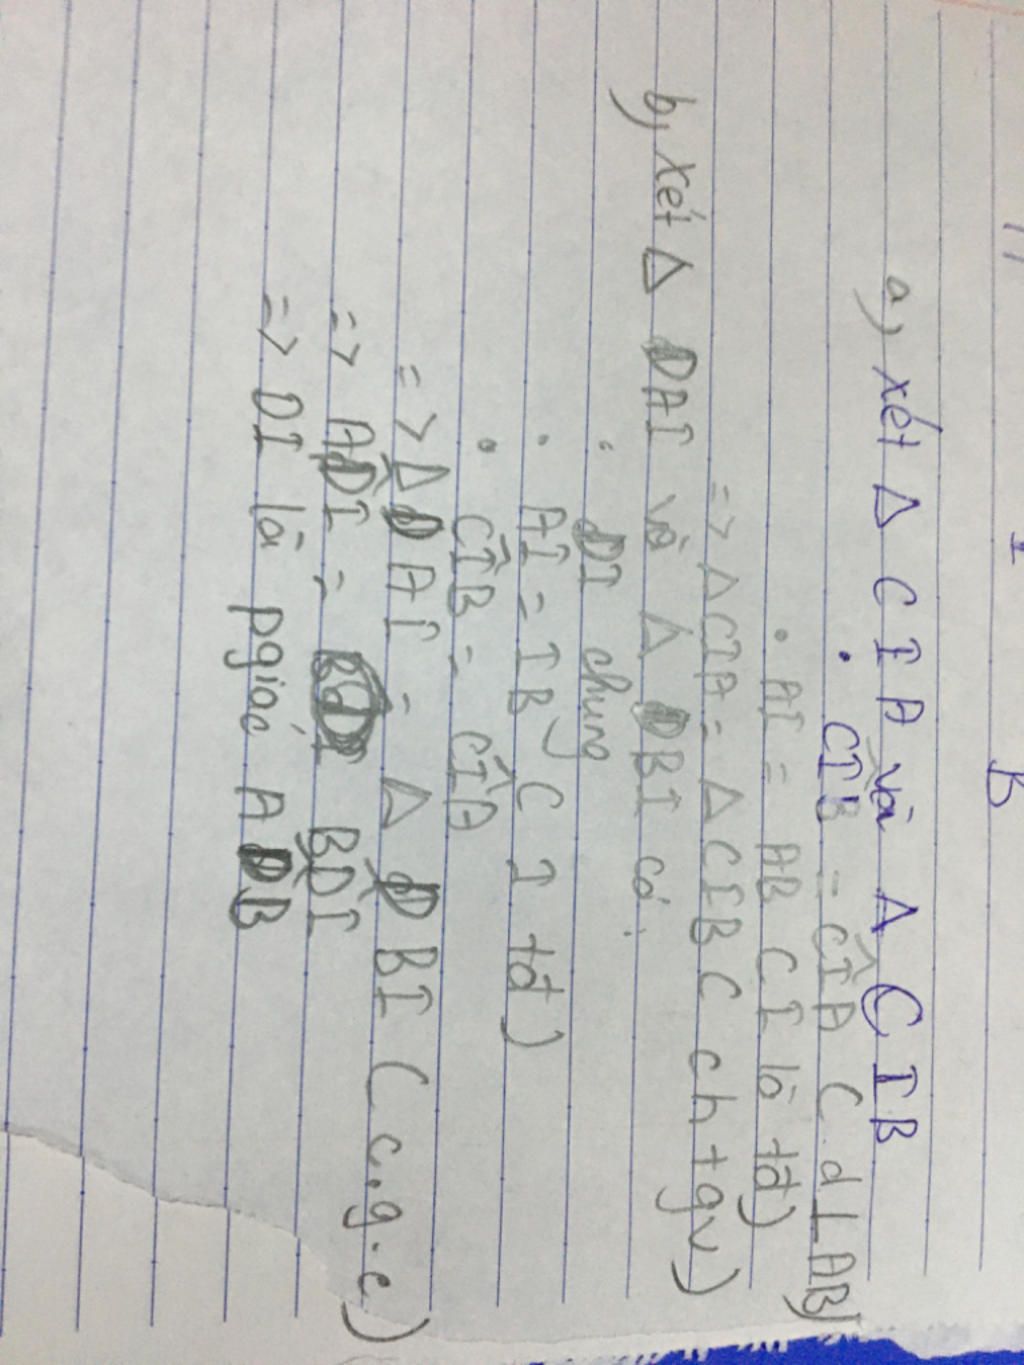 I
B
a, xét Δ CIA và Δ CIB
• CÎB = CÎA ( d ⊥ AB)
• AI = AB ( I là tđ)
=> ΔCIA = ΔCIB ( ch + gv)
b, xét Δ DAI và Δ DBI có:
• DI chung
• AI = IB ( I tđ)
• CÎB = CÎA
=> ΔDAI = Δ DBI ( c.g.c)
=> AD̂I = BD̂I
=> DI là pgiác AD̂B